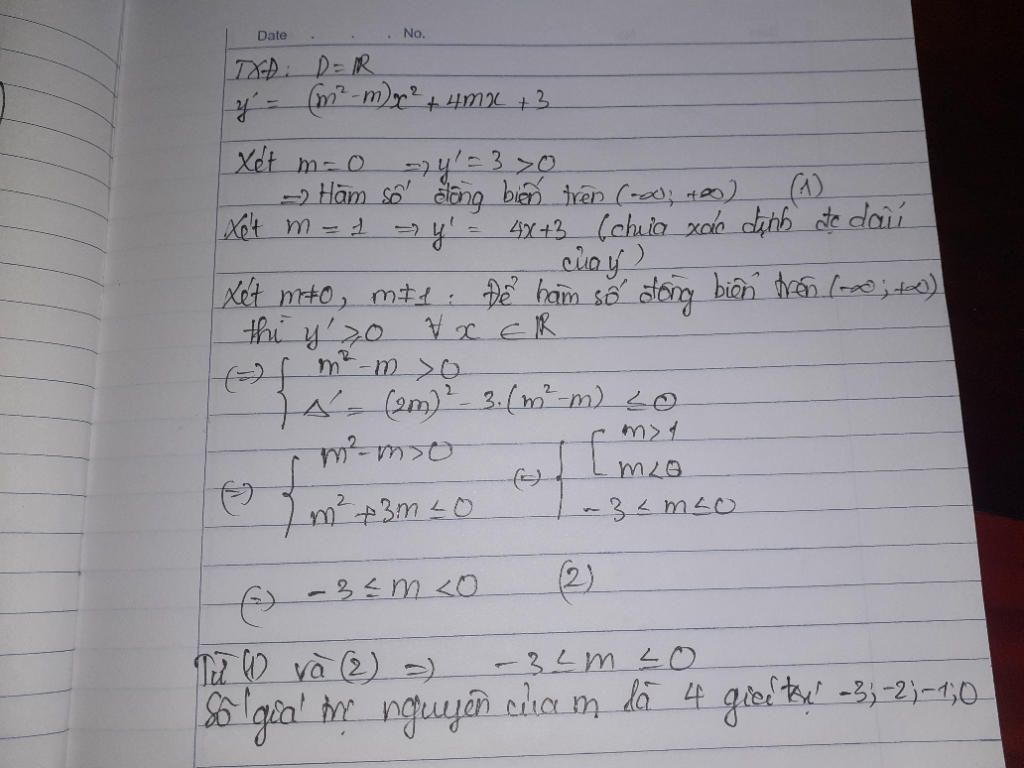 Date . . . No.
TXĐ: D = ℝ
y' = (m² - m)x² + 4mx + 3
Xét m = 0 => y' = 3 > 0
=> Hàm số đồng biến trên (-∞; +∞) (1)
Xét m = 1 => y' = 4x + 3 (chưa xác định đc dấu
của y')
Xét m ≠ 0, m ≠ 1 : Để hàm số đồng biến trên (-∞; +∞)
thì y' ≥ 0 ∀ x ⊂ ℝ
(=) { m² - m > 0
Δ' = (2m)² - 3.(m² - m) ≤ 0
(=) { m² - m > 0 (=) { [ m > 1
m < 0
m² + 3m ≤ 0 - 3 < m ≤ 0
(=) - 3 ≤ m < 0 (2)
Từ (1) và (2) => - 3 ≤ m ≤ 0
Số giá trị nguyên của m là 4 giá trị -3; -2; -1; 0